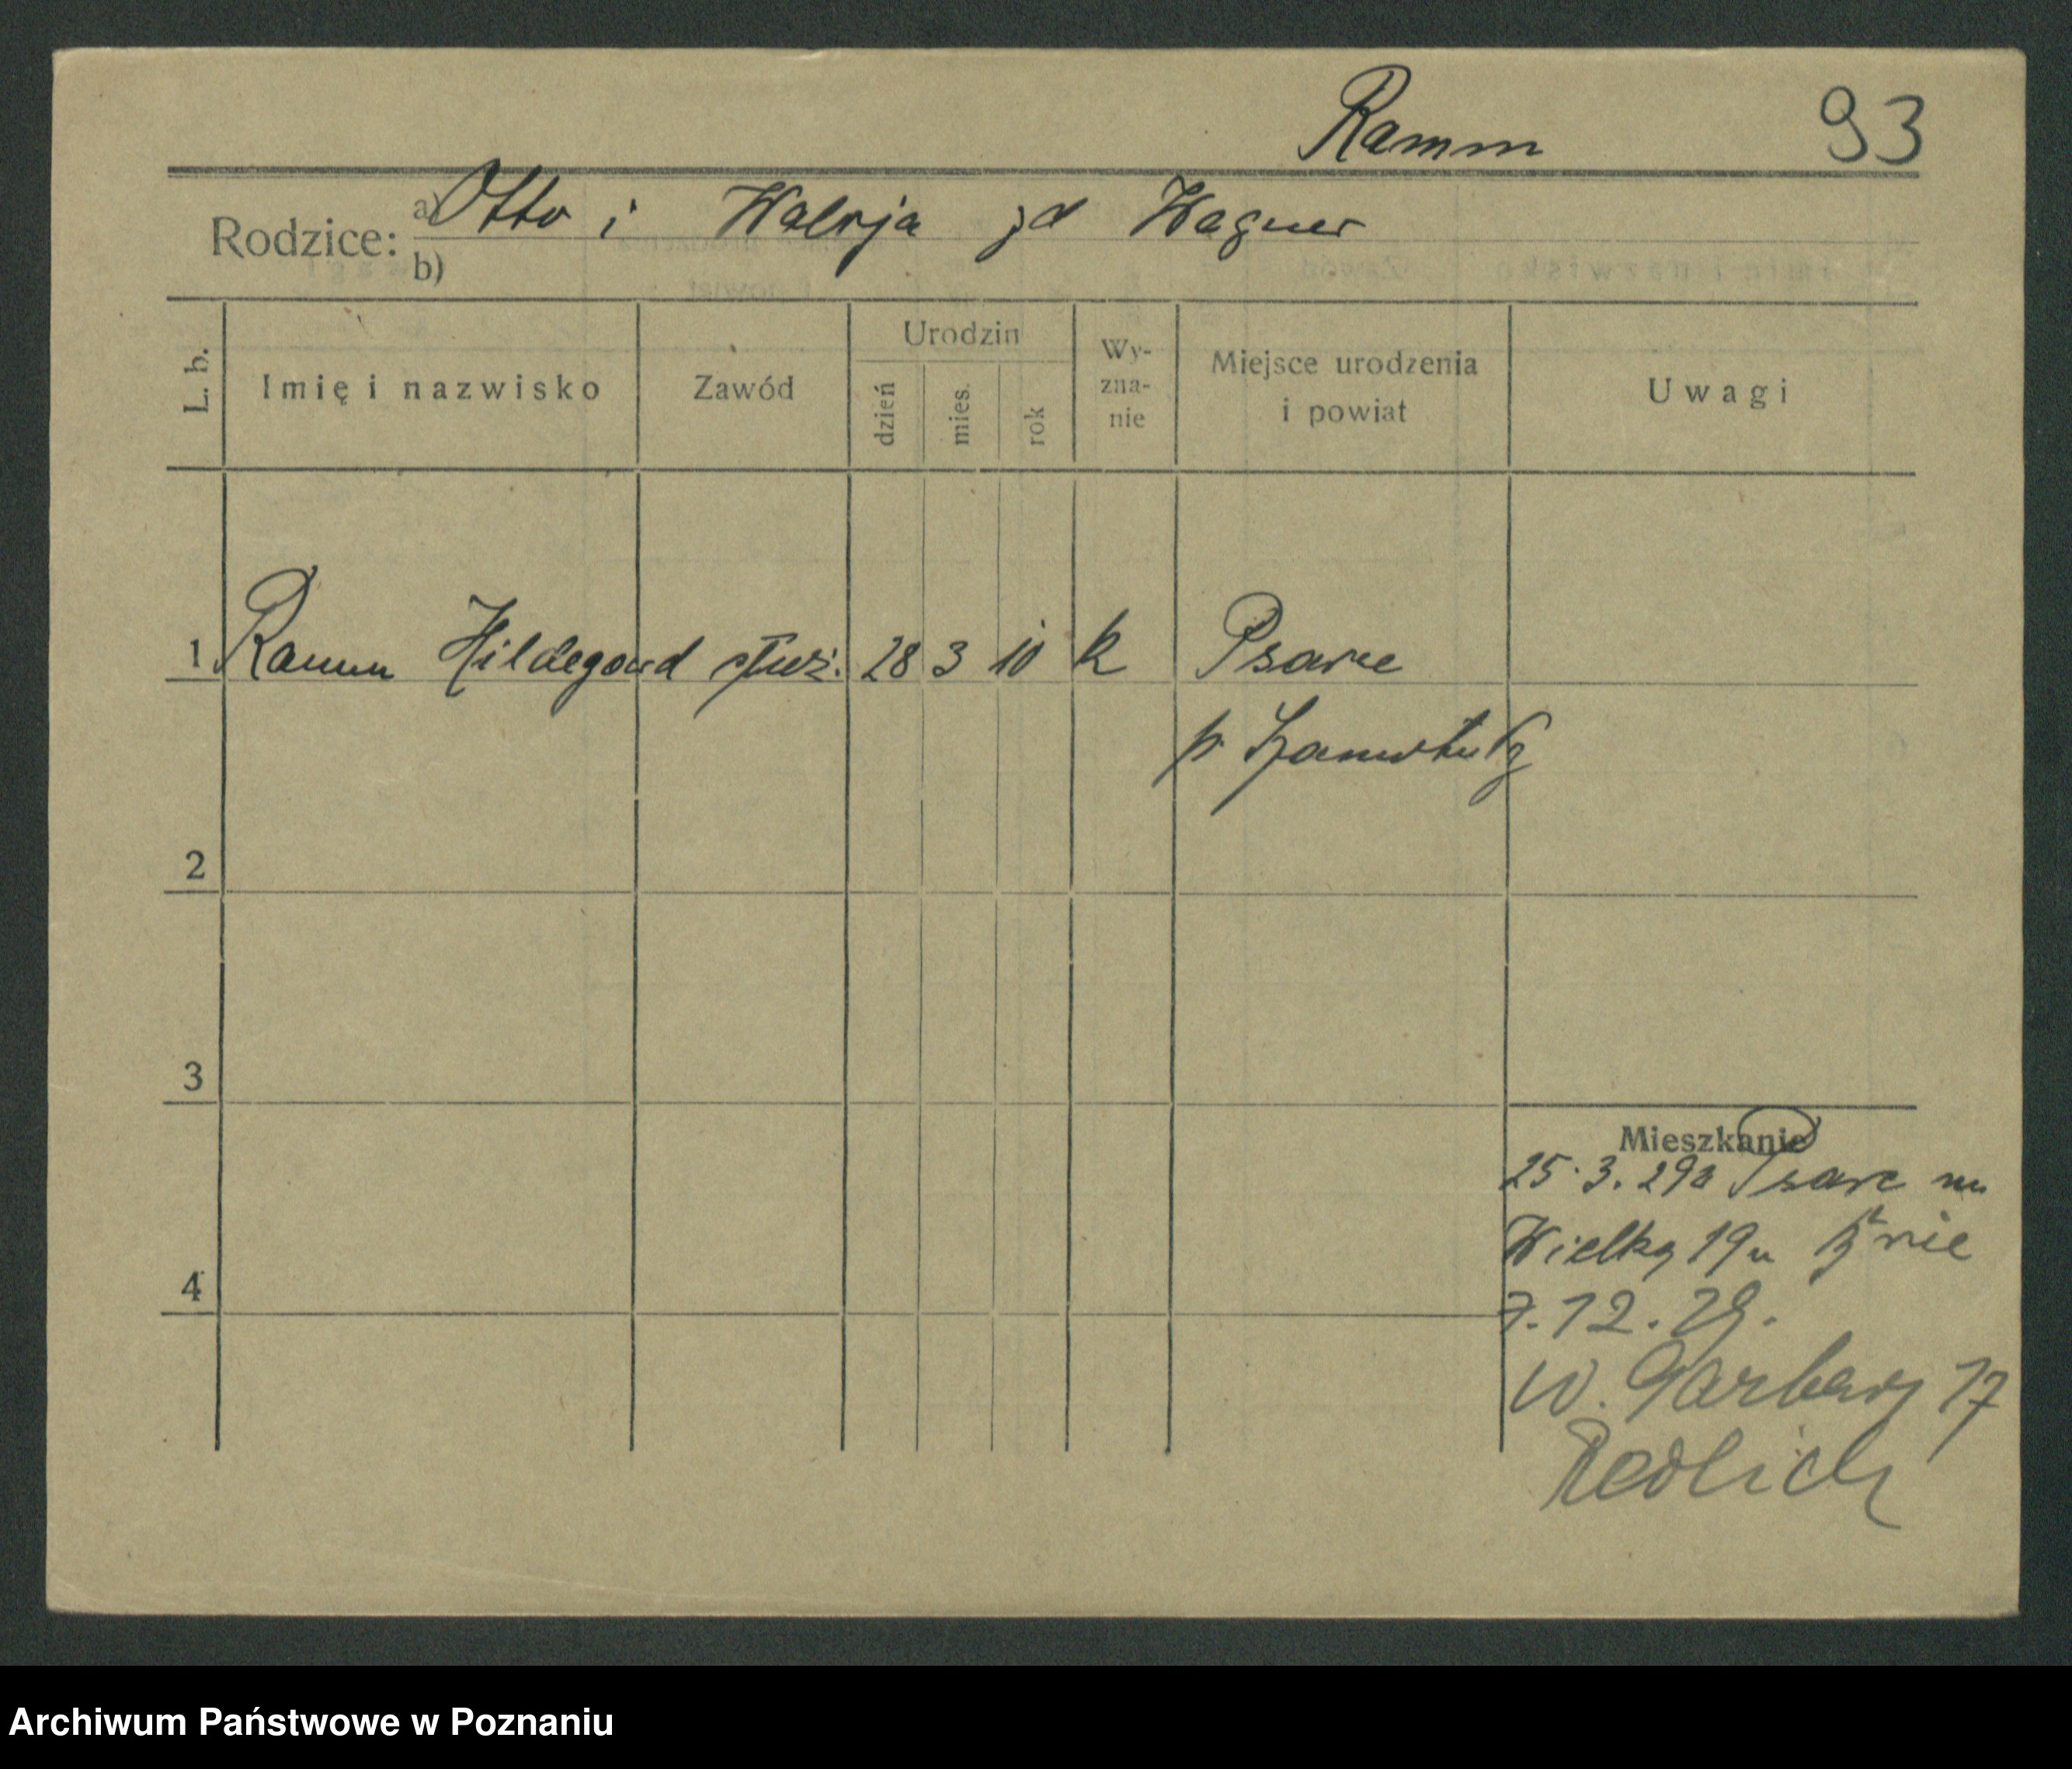 Ramm 93
Rodzice: a) Otto i Walerja zd Wagner
b)
L. b. Imię i nazwisko Zawód Urodzin dzień mies. rok Wy-zna-nie Miejsce urodzenia i powiat Uwagi
1 Ramm Hildegard służ. 28 3 10 k Psarce
p. Szamotuły
2
3
Mieszkanie
25.3.29 Psarce
Wielka 19
4
7.12.29.
W. Garbary 17
Redlich
Archiwum Państwowe w Poznaniu